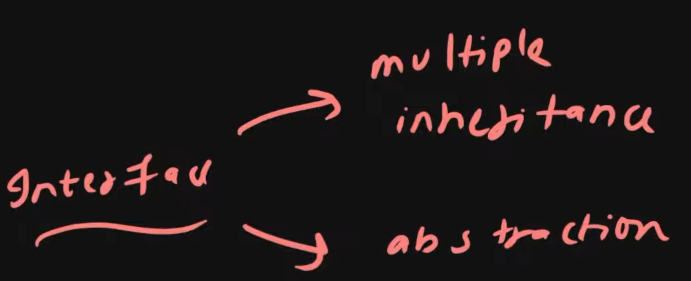 Interface
multiple
inheritance
abstraction